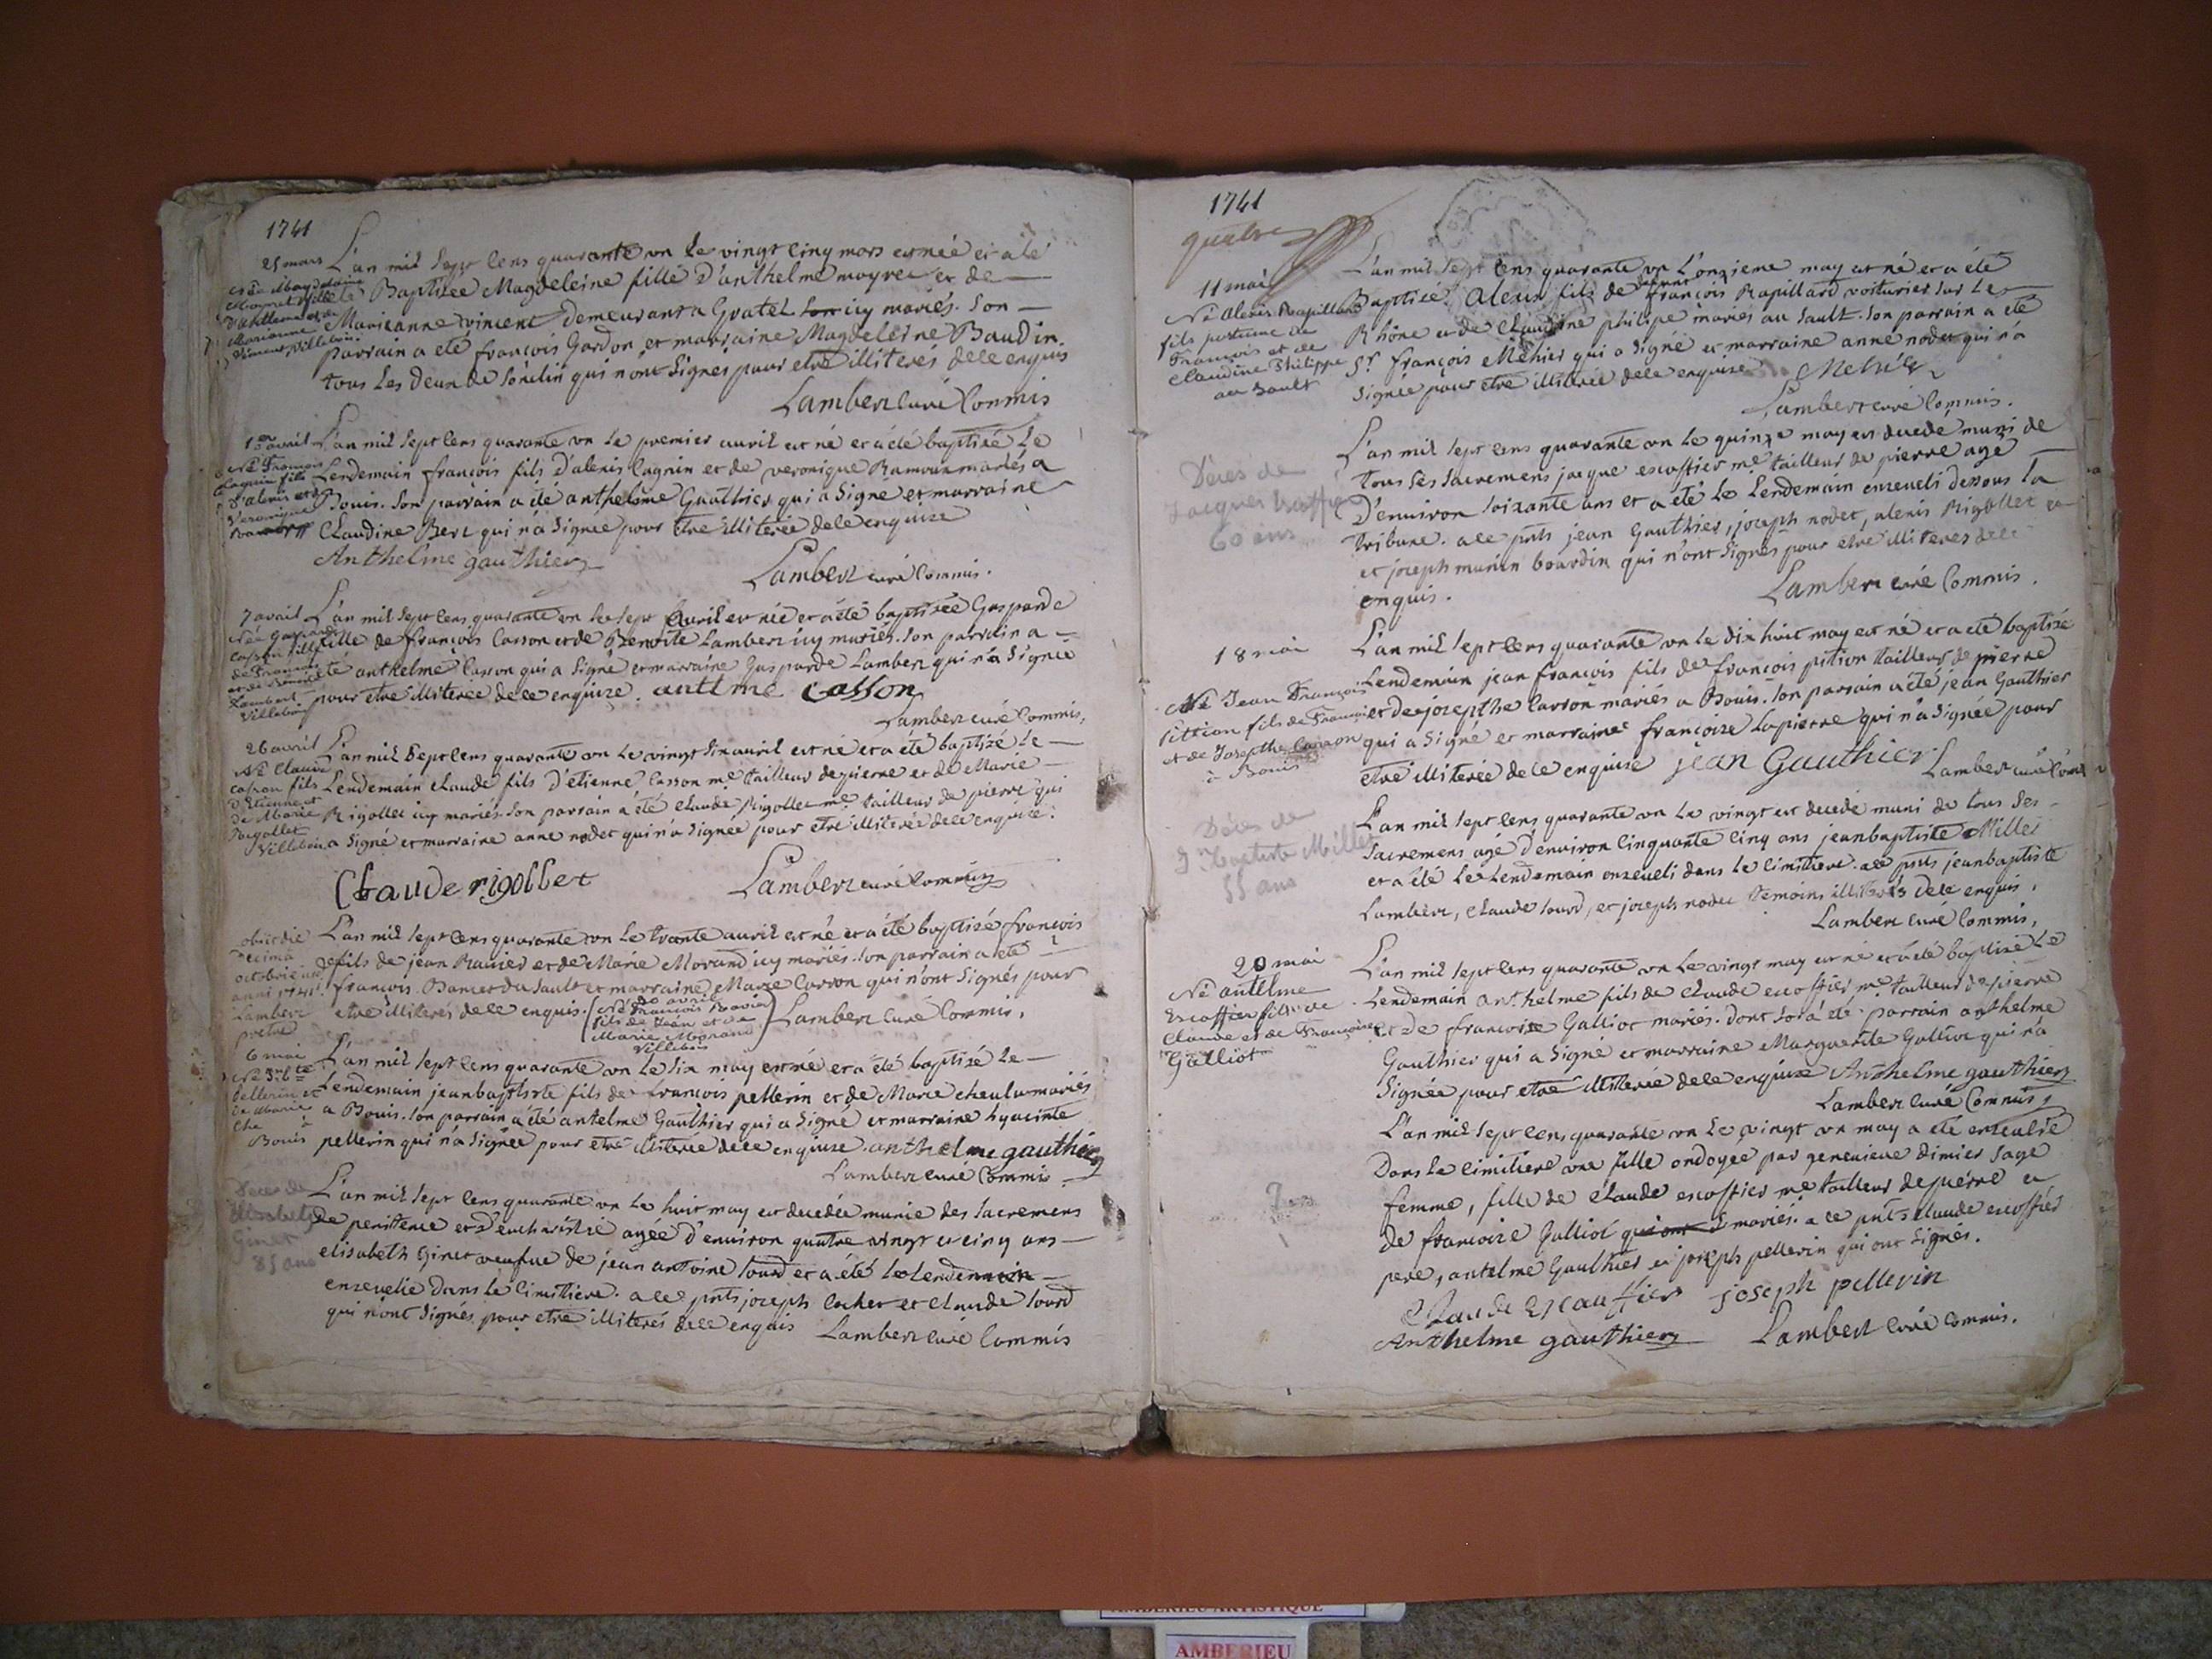 1741
25 mars
Née Magdelaine
Moyret fille
d'Anthelme et de
Marianne
Vincent Villebois
L'an mil sept cens quarante un le vingt cinq mars est née et a été
Baptisée Magdeleine fille D'anthelme moyret et de
Marieanne vincent demeurant a Gratet icy mariés. Son
parrain a été françois Gardon et marraine Magdeleine Baudin
tous les deux de qui n'ont Signés pour etre illiterés de ce enquis
Lambert curé Commis
1er avril
Né François
Cagnin fils
d'alexis et de
Veronique
L'an mil sept cens quarante un le premier auril est né et a été baptizé le
Lendemain françois fils d'alexis Cagnin et de veronique Ramoux mariés a
Bouis. Son parrain a été anthelme Gauthier qui a Signé et marraine
Claudine Bert qui n'a Signée pour etre illiterée de ce enquize
Anthelme gauthier
Lambert curé Commis.
7 avril
Née Gasparde
Casson fille
de François
et de Benoite
Lambert
Villebois
L'an mil sept cens quarante un le sept auril est née et a été baptisée Gasparde
fille de françois Casson et de Benoite Lambert icy mariés. Son parrain a
été anthelme Casson qui a Signé et marraine Gasparde Lambert qui n'a Signée
pour etre illiterée de ce enquize. antlme Casson
Lambert curé Commis,
26 avril
Né Claude
Casson fils
d'Etienne et
de Marie
Rigollet
Villebois
L'an mil Sept cens quarante un le vingt six auril est né et a été baptizé le
Lendemain claude fils d'etienne Casson me tailleur de pierre et de Marie
Rigollet icy mariés. Son parrain a été claude Rigollet me tailleur de pierre qui
a Signé et marraine anne nodet qui n'a Signée pour etre illiterée de ce enquize.
Claude rigollet
Lambert curé Commis
obiit die
decima
octobris
anni 1741
Lambert
pretre
L'an mil sept cens quarante un le trente auril est né et a été baptizé françois
fils de jean Ravier et de Marie Morand icy mariés. Son parrain a été
françois Bancet du Sault et marraine Marie Carron qui n'ont Signés pour
etre illiterés de ce enquis.
(30 avril
Né François Ravier
fils de Jean et de
Marie Morand
Villebois)
Lambert curé Commis,
6 mai
Né J Bte
Pellerin
de Marie
Che
Bouis
L'an mil sept cens quarante un le Six may est né et a été baptizé le
Lendemain jeanbaptiste fils de francois pellerin et de Marie cheulu mariés
a Bouis. Son parrain a été antelme Gauthier qui a Signé et marraine hyacinte
pellerin qui n'a Signée pour etre illiterée de ce enquize. anthelme gauthier
Lambert curé Commis
Deces de
Elisabeth
Ginet
85 ans
L'an mil sept cens quarante un le huit may est decedée munie des Sacremens
de penitence et d'eucharistie agée d'environ quatre vingt et cinq ans
elisabeth Ginet veufue de jean antoine lourd et a été le lendemain
enzevelie dans le cimitiere. a ce pnts joseph Cochet et claude lourd
qui n'ont Signés pour etre illiterés de ce enquis Lambert curé Commis
1741
quatre
11 mai
Né Alexis Rapillard
fils postume de
François et de
Claudine Philippe
au Sault
L'an mil sept cens quarante un L'onzieme may est né et a été
Baptizé Alexis fils de defunt françois Rapillard voiturier sur le
Rhône et de Claudine philipe mariés au Sault. Son parrain a été
Sr françois Mehier qui a Signé et marraine anne nodet qui n'a
Signée pour etre illiterée de ce enquize Mehier
Lambert curé Commis.
Déces de
Jacques Escoffier
60 ans
L'an mil sept cens quarante un le quinze may est decedé muni de
tous ses Sacremens jacque escoffier me tailleur de pierre agé
D'environ soixante ans et a été le Lendemain enzeveli dessous la
tribune. a ce pnts jean Gauthier, joseph nodet, alexis Rigollet
et joseph munin bourdin qui n'ont Signés pour etre illiterés de ce
enquis.
Lambert curé Commis.
18 mai
Né Jean François
Pittion fils de François
et de Josepthe Carron
à Bouis
L'an mil sept cens quarante un le dix huit may est né et a été baptizé
Lendemain jean francois fils de francois pition tailleur de pierre
et de jozepthe Carron mariés a Bouis. Son parrain a été jean Gauthier
qui a Signé et marraine françoize Lapierre qui n'a Signée pour
etre illiterée de ce enquize jean Gauthier Lambert curé Com
Déces de
Jn Baptiste Millet
55 ans
L'an mil sept cens quarante un le vingt est decedé muni de tous Ses
Sacremens agé d'environ cinquante cinq ans jeanbaptiste Millet
et a été le Lendemain enzeveli dans le cimitiere. a ce pnts jeanbaptiste
Lambert, claude lourd, et joseph nodet temoins illiterés de ce enquis,
Lambert curé Commis,
20 mai
Né antelme
Escoffier fils de
Claude et de Françoise
Galliot
L'an mil sept cens quarante un le vingt may est né et a été baptizé le
Lendemain anthelme fils de claude escoffier me tailleur de pierre
et de francoize Galliot mariés. Dont a été parrain anthelme
Gauthier qui a Signé et marraine Marguerite Galliot qui n'a
Signée pour etre illiterée de ce enquize Anthelme gauthier
Lambert curé Commis,
L'an mil sept cens quarante un le vingt un may a été enzevelie
Dans le cimitiere une fille ondoyée par genevieve dimier sage
femme, fille de claude escoffier me tailleur de pierre et
de francoize Galliot qui ont mariés. a ce pnts claude escoffier
pere, antelme Gauthier et joseph pellerin qui ont Signés.
Claude Escauffier joseph pellerin
Anthelme gauthier Lambert curé Commis.
AMBERIEU ARTISTIQUE
AMBERIEU